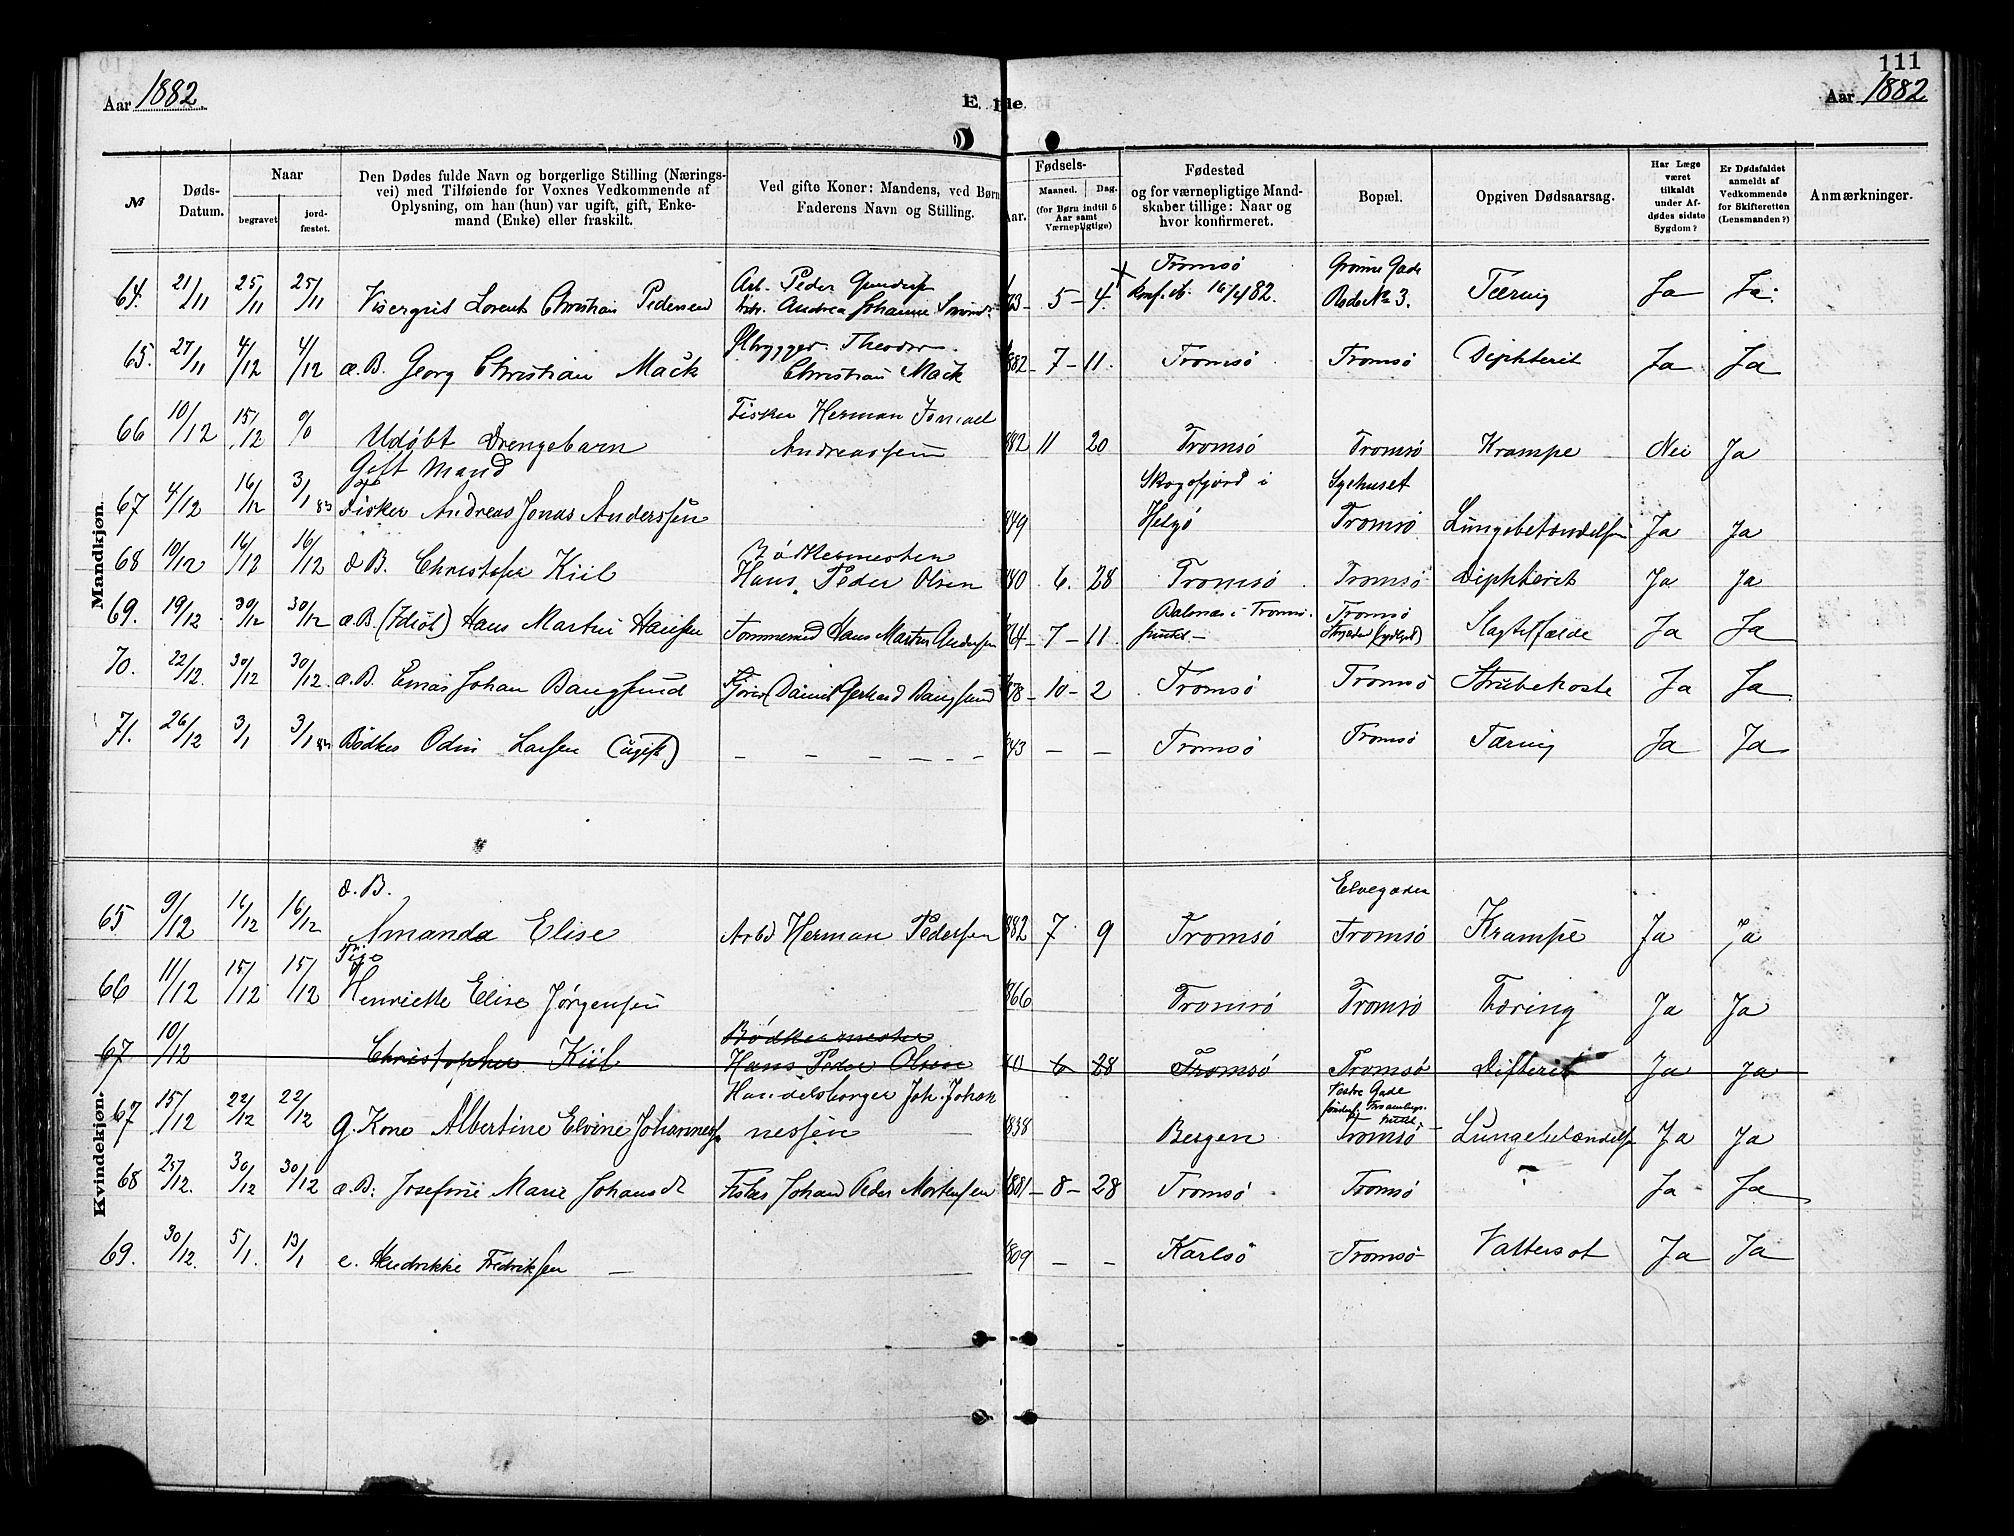 111
Aar 1882.
E. de.
Aar 1882
No
Døds-Datum.
Naar
begravet
jordfæstet.
Den Dødes fulde Navn og borgerlige Stilling (Næringsvei) med Tilføiende for Voxnes Vedkommende af Oplysning, om han (hun) var ugift, gift, Enkemand (Enke) eller fraskilt.
Ved gifte Koner: Mandens, ved Børn Faderens Navn og Stilling.
Fødsels-
Aar.
Maaned.
Dag.
(for Børn indtil 5 Aar samt Værnepligtige)
Fødested og for værnepligtige Mandskaber tillige: Naar og hvor konfirmeret.
Bopæl.
Opgiven Dødsaarsag.
Har Læge været tilkaldt under Afdødes sidste Sygdom?
Er Dødsfaldet anmeldt af Vedkommende for Skifteretten (Lensmanden?)
Anmærkninger.
Mandkjøn.
64. 21/11 25/11 25/11 Lorents Christian Pedersen Arb. Peder Andrea Johanne 63 - 5 - 4 Tromsø Konf. 16/4 82. Grønne Gade Rode No 3. Tæring Ja Ja.
65. 27/11 4/12 4/12 æ.B. Georg Christian Mack Ølbrygger Theodor Christian Mack 882 - 7 - 11. Tromsø Tromsø Diphterit Ja Ja
66 10/12 15/12 0/0 Udøbt Drengebarn Fisker Herman Andreassen 882 11 20 Tromsø Tromsø Krampe Nei Ja
67 4/12 16/12 3/1 83 Gift Mand Fisker Andreas Jonas Anderssen 849 Skogsfjord i Helgø Sygehuset Tromsø Lungebetændelse Ja Ja
68 10/12 16/12 16/12 æ B. Christofer Kiil Bødkermester Hans Peder Olsen 80 6. 28 Tromsø Tromsø Diphterit Ja Ja
69. 19/12 30/12 30/12 æ.B. (Idiot) Hans Martin Hansen Tømmermand Hans Martin Andersen 64 - 7 - 11. i Tromsø - Tromsø Ja Ja
70. 22/12. 30/12 30/12. æ.B. Johan Bangsund Daniel Gerhard Bangsund 878 - 10 - 2 Tromsø Tromsø Strubehoste Ja Ja
71. 26/12 3/1 3/1 83 Bødker Odin Larsen (ugift) - - - - - - 843 - - Tromsø Tromsø Tæring Ja Ja
Kvindekjøn.
65 9/12 16/12 16/12 æ.B. Amanda Elise Arbd Herman Pedersen 882 7 9 Tromsø Elvegaden Tromsø Krampe Ja Ja
66 11/12 15/12 15/12 Pige Henriette Elise Jørgensen 866 Tromsø Tromsø Tæring Ja Ja
67 10/12 Christopher Kiil Bødkermester Hans Peder Olsen 80 6 28 Tromsø Tromsø Difterit Ja Ja
67 15/12 22/12 22/12 g. Kone Albertine Elvine Johanness. Handelsborger Joh. Johannessen 838 Bergen Vestre Gade Tromsø Lungebetændelse Ja Ja
68 25/12. 30/12 30/12 æ.B: Josefine Marie Johansdt Fisker Johan Peder Mortensen 1881 - 8 - 28 Tromsø Tromsø ? Ja Ja
69. 30/12. 5/1. 13/1 e. Hendrikke Fredriksen - 1809 - - Karlsø Tromsø Vattersot Ja Ja